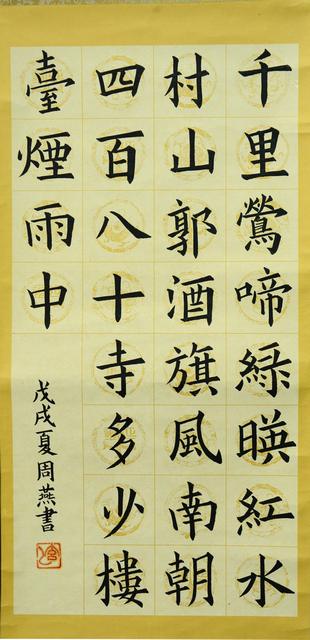 千里鶯啼緑暎紅水
村山郭酒旗風南朝
四百八十寺多少樓
臺煙雨中
戊戌夏周燕書